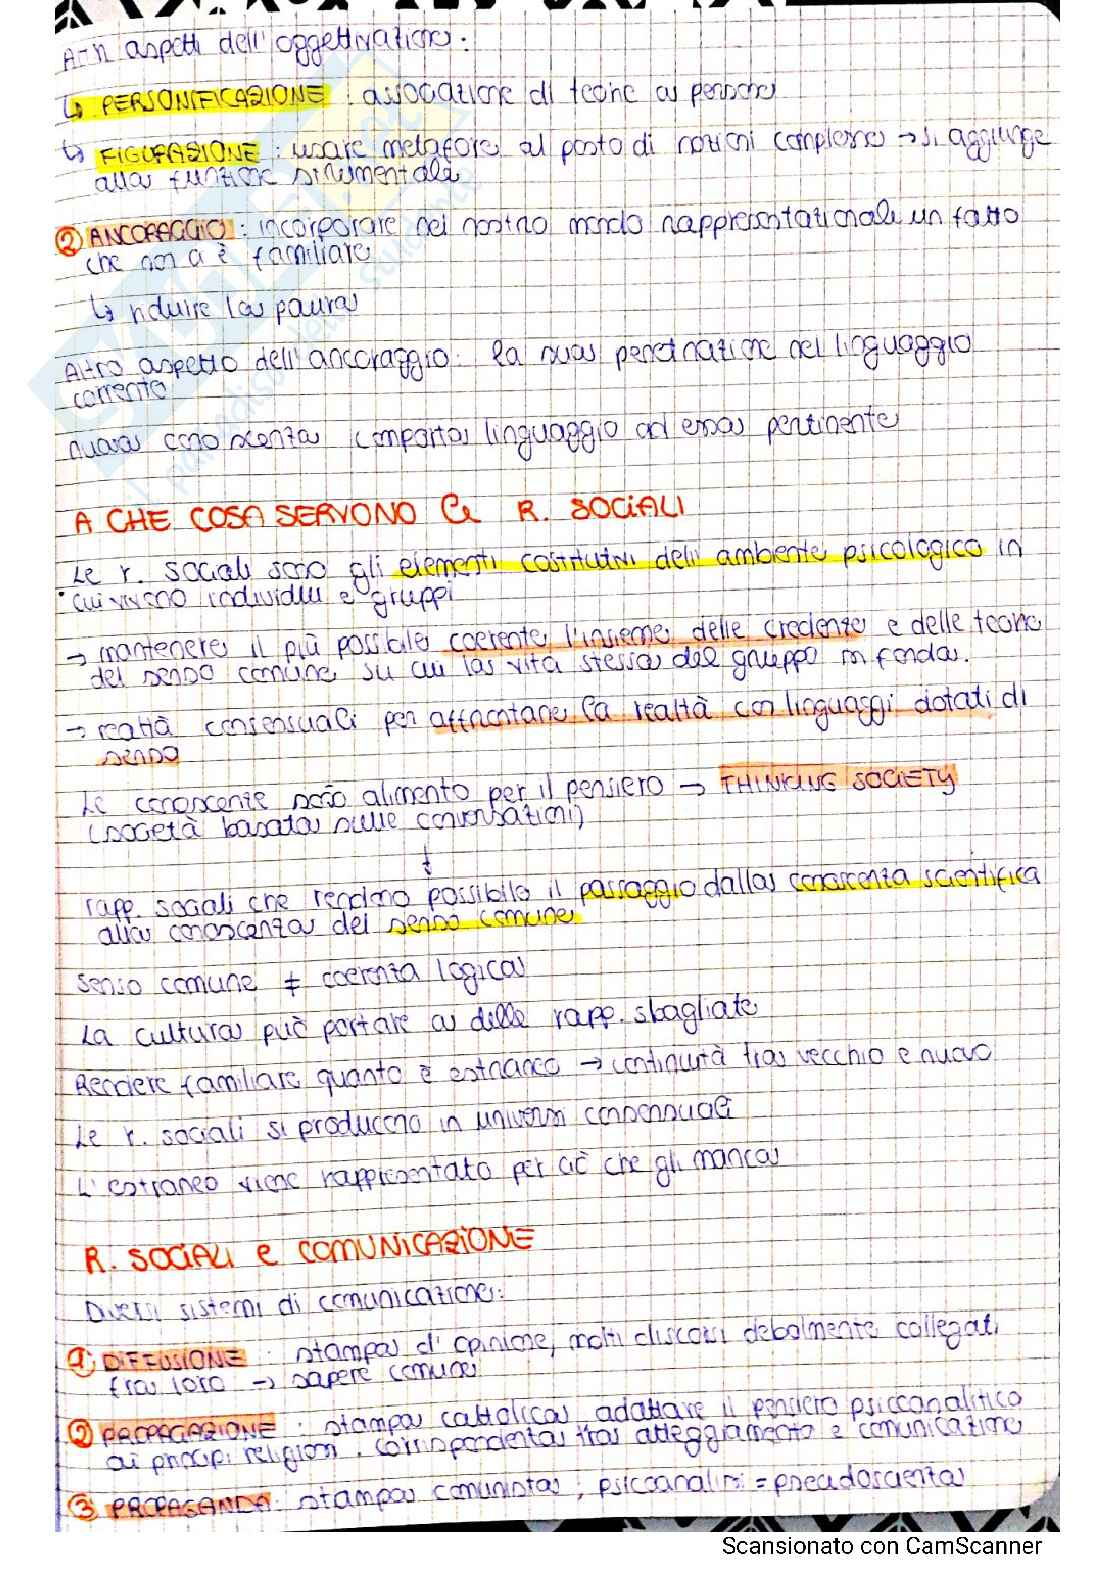 Altri aspetti dell'oggettivazione:
↳ PERSONIFICAZIONE : associazione di teorie a persone
↳ FIGURAZIONE : usare metafore al posto di nozioni complesse → si aggiunge
alla funzione strumentale
② ANCORAGGIO : incorporare nel nostro mondo rappresentazionale un fatto
che non ci è familiare
↳ ridurre la paura
Altro aspetto dell'ancoraggio: la sua penetrazione nel linguaggio
corrente
nuova conoscenza comporta linguaggio ad essa pertinente
A CHE COSA SERVONO le R. SOCIALI
Le r. sociali sono gli elementi costitutivi dell'ambiente psicologico in
cui vivono individui e gruppi
→ mantenere il più possibile coerente l'insieme delle credenze e delle teorie
del senso comune su cui la vita stessa del gruppo si fonda.
→ realtà consensuali per affrontare la realtà con linguaggi dotati di
senso
Le conoscenze sono alimento per il pensiero → THINKING SOCIETY
(società basata sulle conversazioni)
↓
rapp. sociali che rendono possibile il passaggio dalla conoscenza scientifica
alla conoscenza del senso comune
Senso comune ≠ coerenza logica
La cultura può portare a delle rapp. sbagliate
Rendere familiare quanto è estraneo → continuità tra vecchio e nuovo
Le r. sociali si producono in universi consensuali
L'estraneo viene rappresentato per ciò che gli manca
R. SOCIALI e COMUNICAZIONE
Diversi sistemi di comunicazione:
① DIFFUSIONE : stampa d'opinione, molti discorsi debolmente collegati
fra loro → sapere comune
② PROPAGAZIONE : stampa cattolica adattare il pensiero psicoanalitico
ai principi religiosi. Corrispondenza tra atteggiamento e comunicazione
③ PROPAGANDA: stampa comunista; psicoanalisi = pseudoscienza
Scansionato con CamScanner